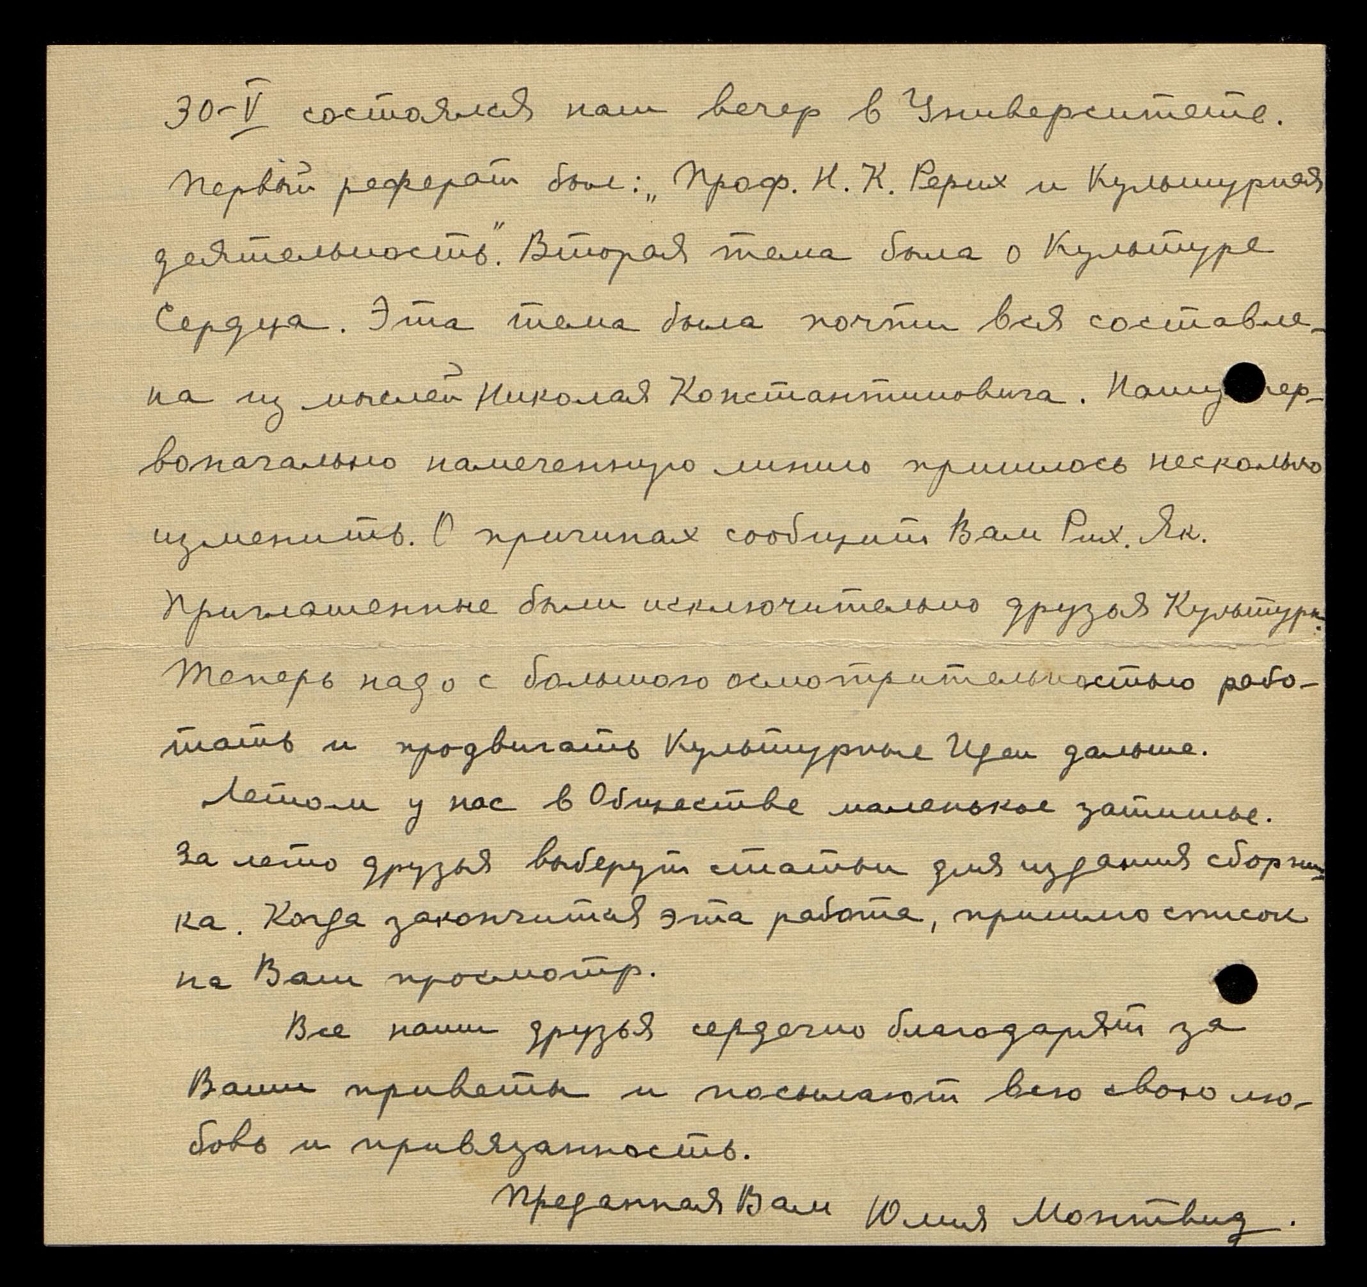 30-V состоялся наш вечер в Университете.
Первый реферат был: „Проф. Н. К. Рерих и Культурная
деятельность". Вторая тема была о Культуре
Сердца. Эта тема была почти вся составле-
на из мыслей Николая Константиновича. Нашу пер-
воначально намеченную линию пришлось несколько
изменить. О причинах сообщит Вам Рих. Як.
Приглашенные были исключительно друзья Культуры.
Теперь надо с большою осмотрительностью рабо-
тать и продвигать Культурные Идеи дальше.
Летом у нас в Обществе маленькое затишье.
За лето друзья выберут статьи для издания сборни-
ка. Когда закончится эта работа, пришлю список
на Ваш просмотр.
Все наши друзья сердечно благодарят за
Ваши приветы и посылают всю свою лю-
бовь и привязанность.
Преданная Вам Юлия Монтвид.